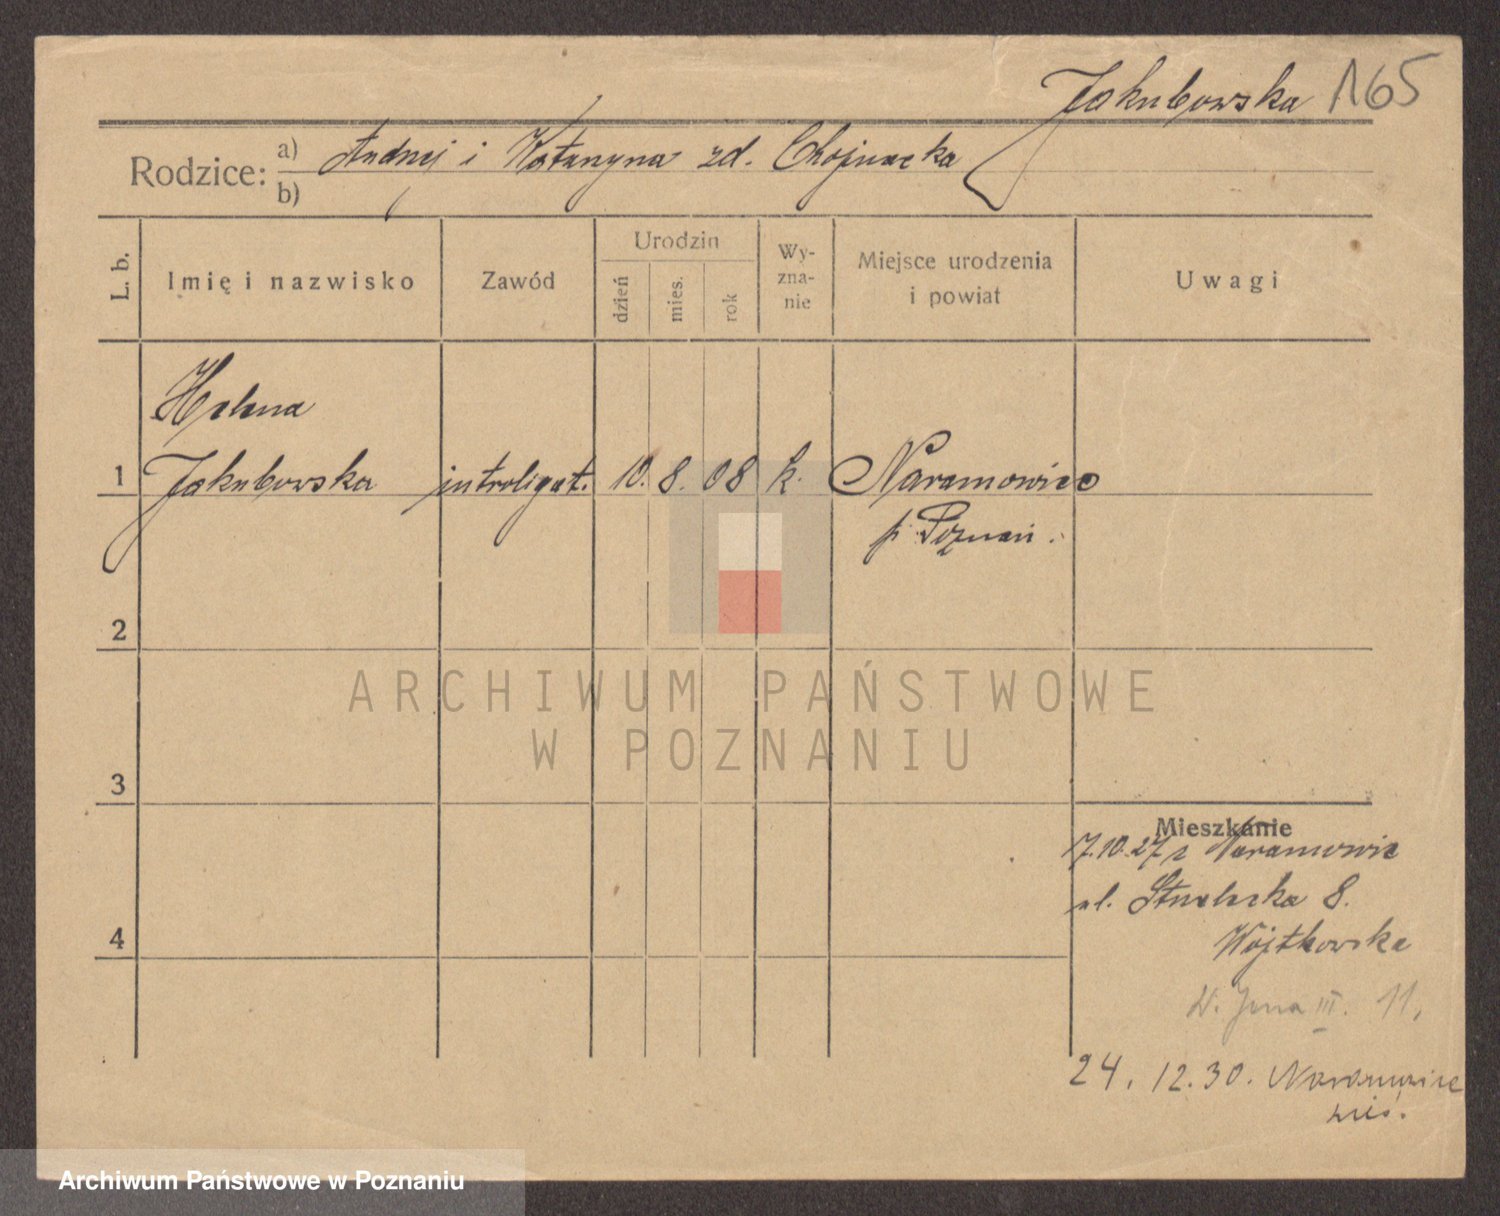 Jakubowska 165
Rodzice: a) Andrzej i Katarzyna zd. Chojnacka
b)
L. b. Imię i nazwisko Zawód Urodzin dzień mies. rok Wy-zna-nie Miejsce urodzenia i powiat Uwagi
Helena
1 Jakubowska introligat. 10. 8. 08 k. Naramowice
p. Poznań.
2
ARCHIWUM PAŃSTWOWE
W POZNANIU
3
Mieszkanie
17.10.27 z Naramowic
ul. Strzelecka 8.
Wojtkowska
W. Jana III. 11,
4
24. 12. 30. Naramowice
wieś.
Archiwum Państwowe w Poznaniu